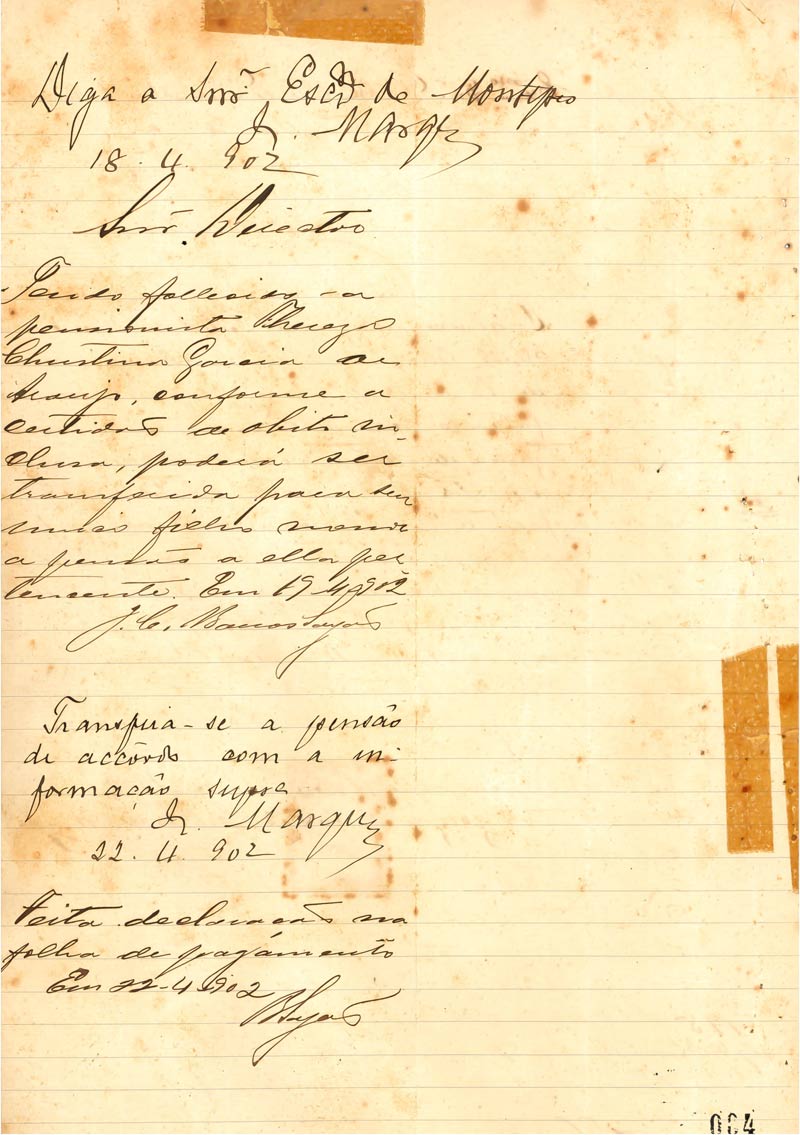 Diga o Snr. Escrm de Montepio
Dr. Marques
18. 4. 902
Snr. Director
Tendo fallecido a
pensionista Thereza
Christina Garcia de
Araujo, conforme a
certidão de obito in-
clusa, poderá ser
transferida para seu
unico filho menor
a pensão a ella per
tencente. Em 19-4-902
J. C. Barros Sayão
Transfira-se a pensão
de accôrdo com a in-
formação supra
Dr. Marques
22. 4. 902
Feita declaração na
folha de pagamento
Em 22-4-902
BSayão
004